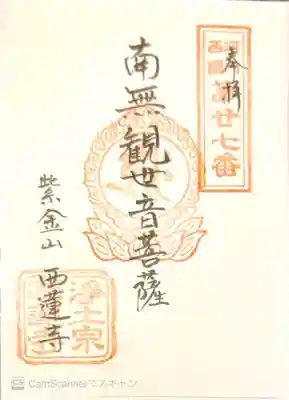 奉拝
西國
第廿七番
南無観世音菩薩
紫金山
西蓮寺
浄土宗
CS CamScannerでスキャン